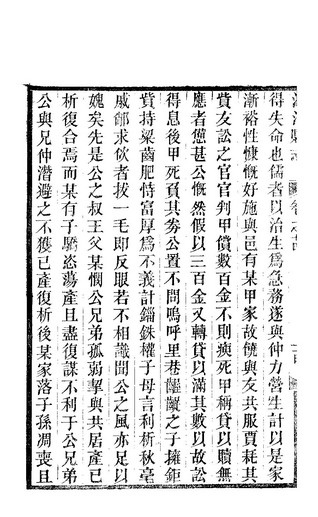 得失命也儒者以治生爲急務遂與仲力營生計以是家
漸裕性慷慨好施與邑有某甲家故饒與友共服賈耗其
貲友訟之官官判甲償數百金不則瘐死甲稱貸以贖無
應者憊甚公慨然假以三百金又轉貸以滿其數以故訟
得息後甲死頁其劵公置不問嗚呼里巷齷齪之子擁鉅
貲持粱齒肥恃富厚爲不義計錙銖權子母言利析秋毫
戚䣊求欱者拔一毛卽反眼若不相識聞公之風亦足以
媿矣先是公之叔王父某憫公兄弟孤弱挈與共居產已
析復合焉而某有子驕恣蕩產且盡復謀不利于公兄弟
公與兄仲潛避之不獲已產復析後某家落子孫凋喪且